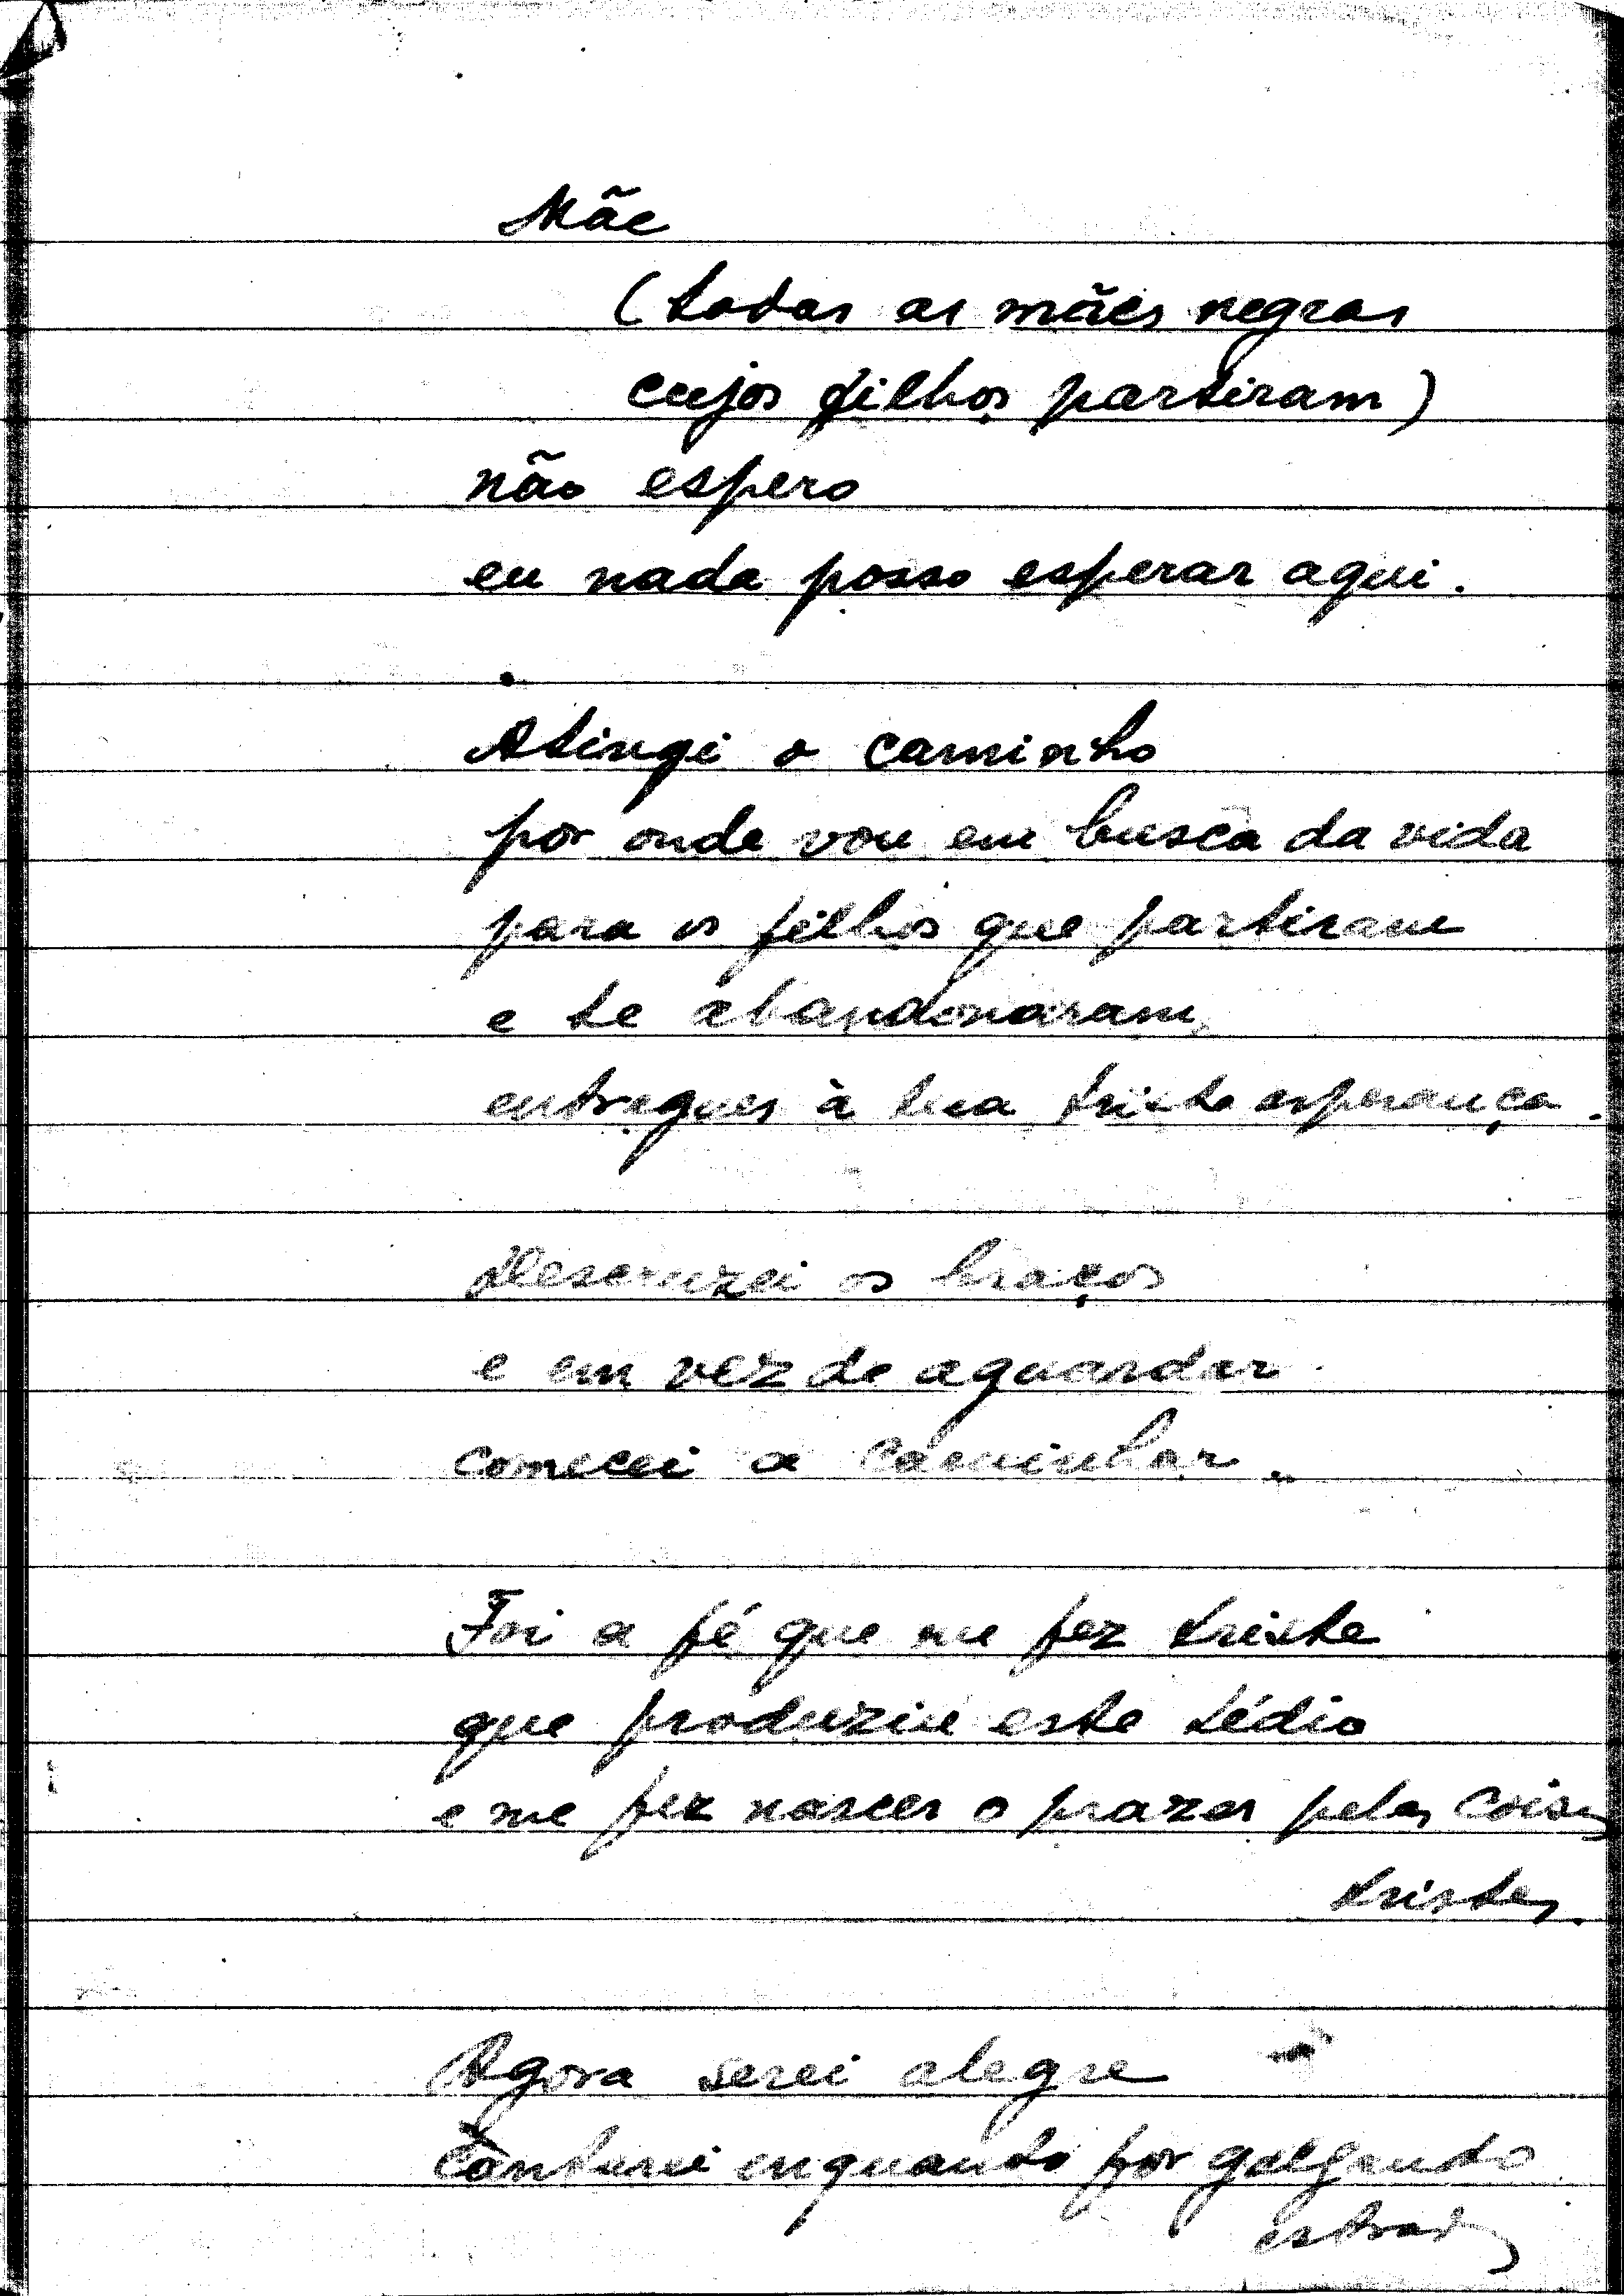 Mãe
(todas as mães negras
cujos filhos partiram)
não espero
eu nada posso esperar aqui.
Atingi o caminho
por onde vou em busca da vida
para os filhos que partiram
e te abandonaram
entregues à tua triste esperança.
Descruzei os braços
e em vez de aguardar
comecei a caminhar.
Foi a fé que me fez triste
que produziu este tédio
e me fez nascer o prazer pelas coisas
tristes.
Agora serei alegre
Cantarei enquanto for galgando
estradas